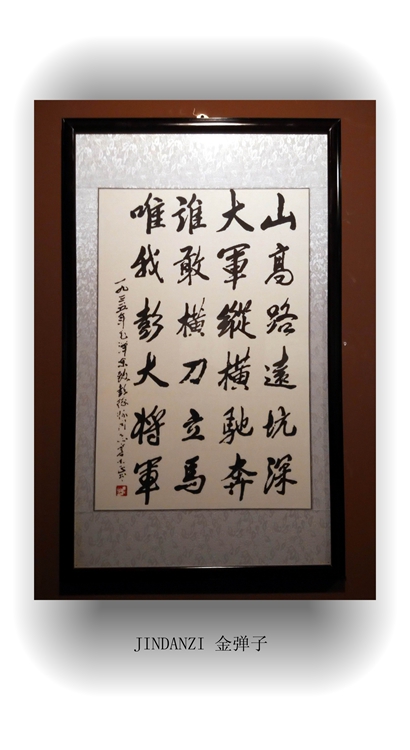 山高路遠坑深
大軍縱橫馳奔
誰敢橫刀立馬
唯我彭大將軍
一九三五年毛澤東
JINDANZI 金弹子